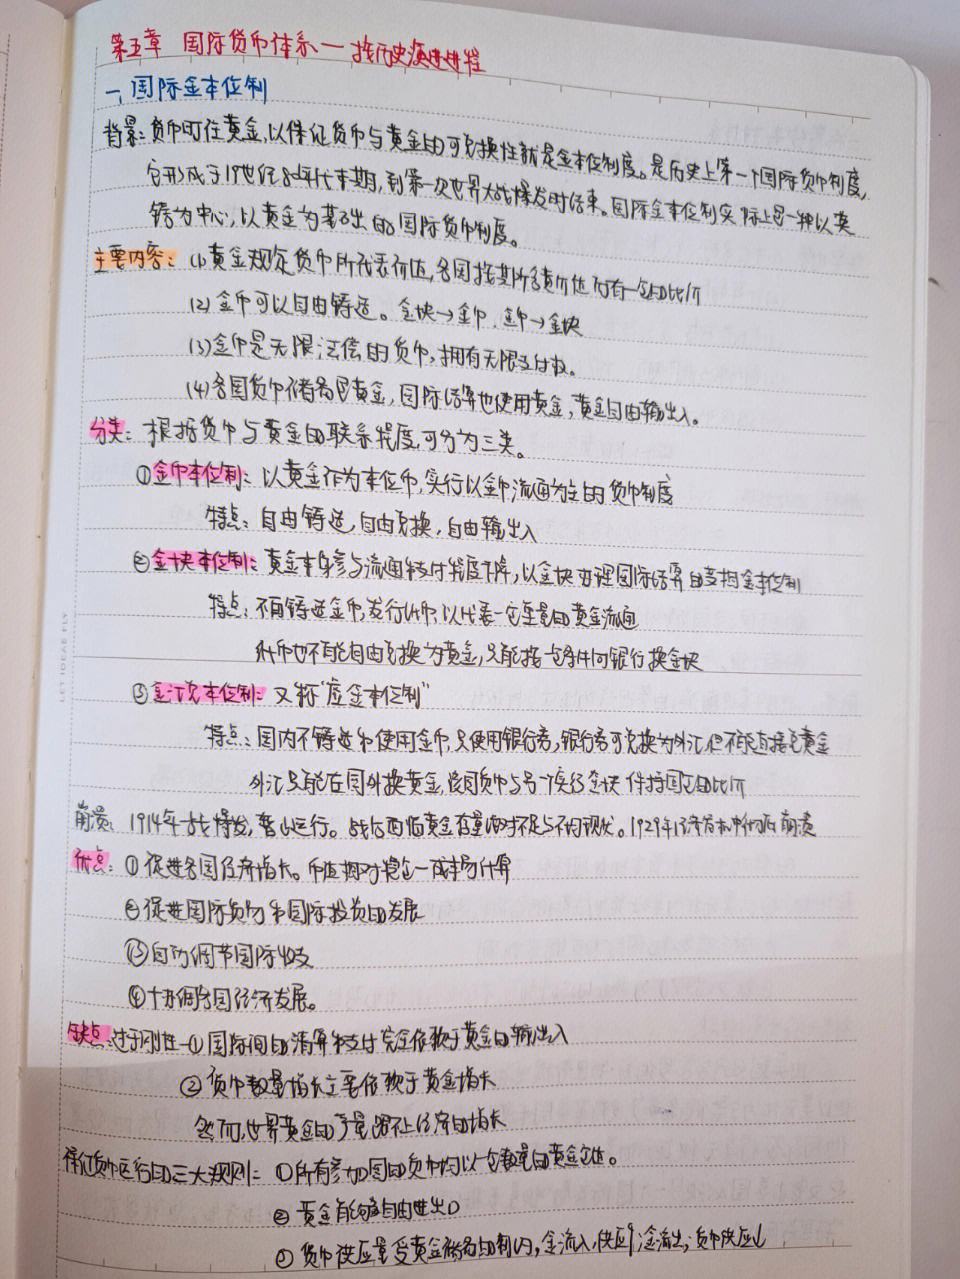 第五章 国际货币体系—按历史演进进程
一、国际金本位制
背景：货币盯住黄金，以保证货币与黄金的可兑换性就是金本位制度。是历史上第一个国际货币制度，
它形成于19世纪80年代末期，到第一次世界大战爆发时结束。国际金本位制实际上是一种以英
镑为中心，以黄金为基础的国际货币制度。
主要内容：(1)黄金规定货币所代表价值，各国按其所含价值而有一定的比价
(2)金币可以自由铸造。金块→金币，金币→金块
(3)金币是无限法偿的货币，拥有无限支付权。
(4)各国货币储备是黄金，国际结算也使用黄金，黄金自由输出入。
分类：根据货币与黄金的联系程度，可分为三类。
①金币本位制：以黄金作为本位币，实行以金币流通为主的货币制度
特点：自由铸造，自由兑换，自由输出入
②金块本位制：黄金本身参与流通和支付程度下降，以金块办理国际结算的变相金本位制
特点：不再铸造金币，发行纸币，以代表一定重量的黄金流通
纸币也不能自由兑换为黄金，只能按一定条件向银行换金块
③金汇兑本位制：又称"虚金本位制"
特点：国内不铸造和使用金币，只使用银行券，银行券可兑换为外汇，但不能直接兑黄金
外汇只能在国外换黄金，该国货币与另一实行金块 保持固定的比价
崩溃：1914年一战爆发，暂停运行。战后面临黄金存量相对不足与不均现状。1929年经济危机冲击后崩溃
优点：①促进各国经济增长。币值相对稳定—成本易计算
②促进国际贸易和国际投资的发展
③自动调节国际收支
④协调各国经济发展。
缺点：过于刚性—①国际间的清算和支付完全依赖于黄金的输出入
②货币数量增长主要依赖于黄金增长
然而，世界黄金的产量跟不上经济的增长
保证货币运行的三大规则：①所有参加国的货币均以一定数量的黄金定值。
②黄金能够自由进出口
③货币供应量受黄金储备的制约，金流入，供应↑，金流出，货币供应↓
LET IDEAS FLY